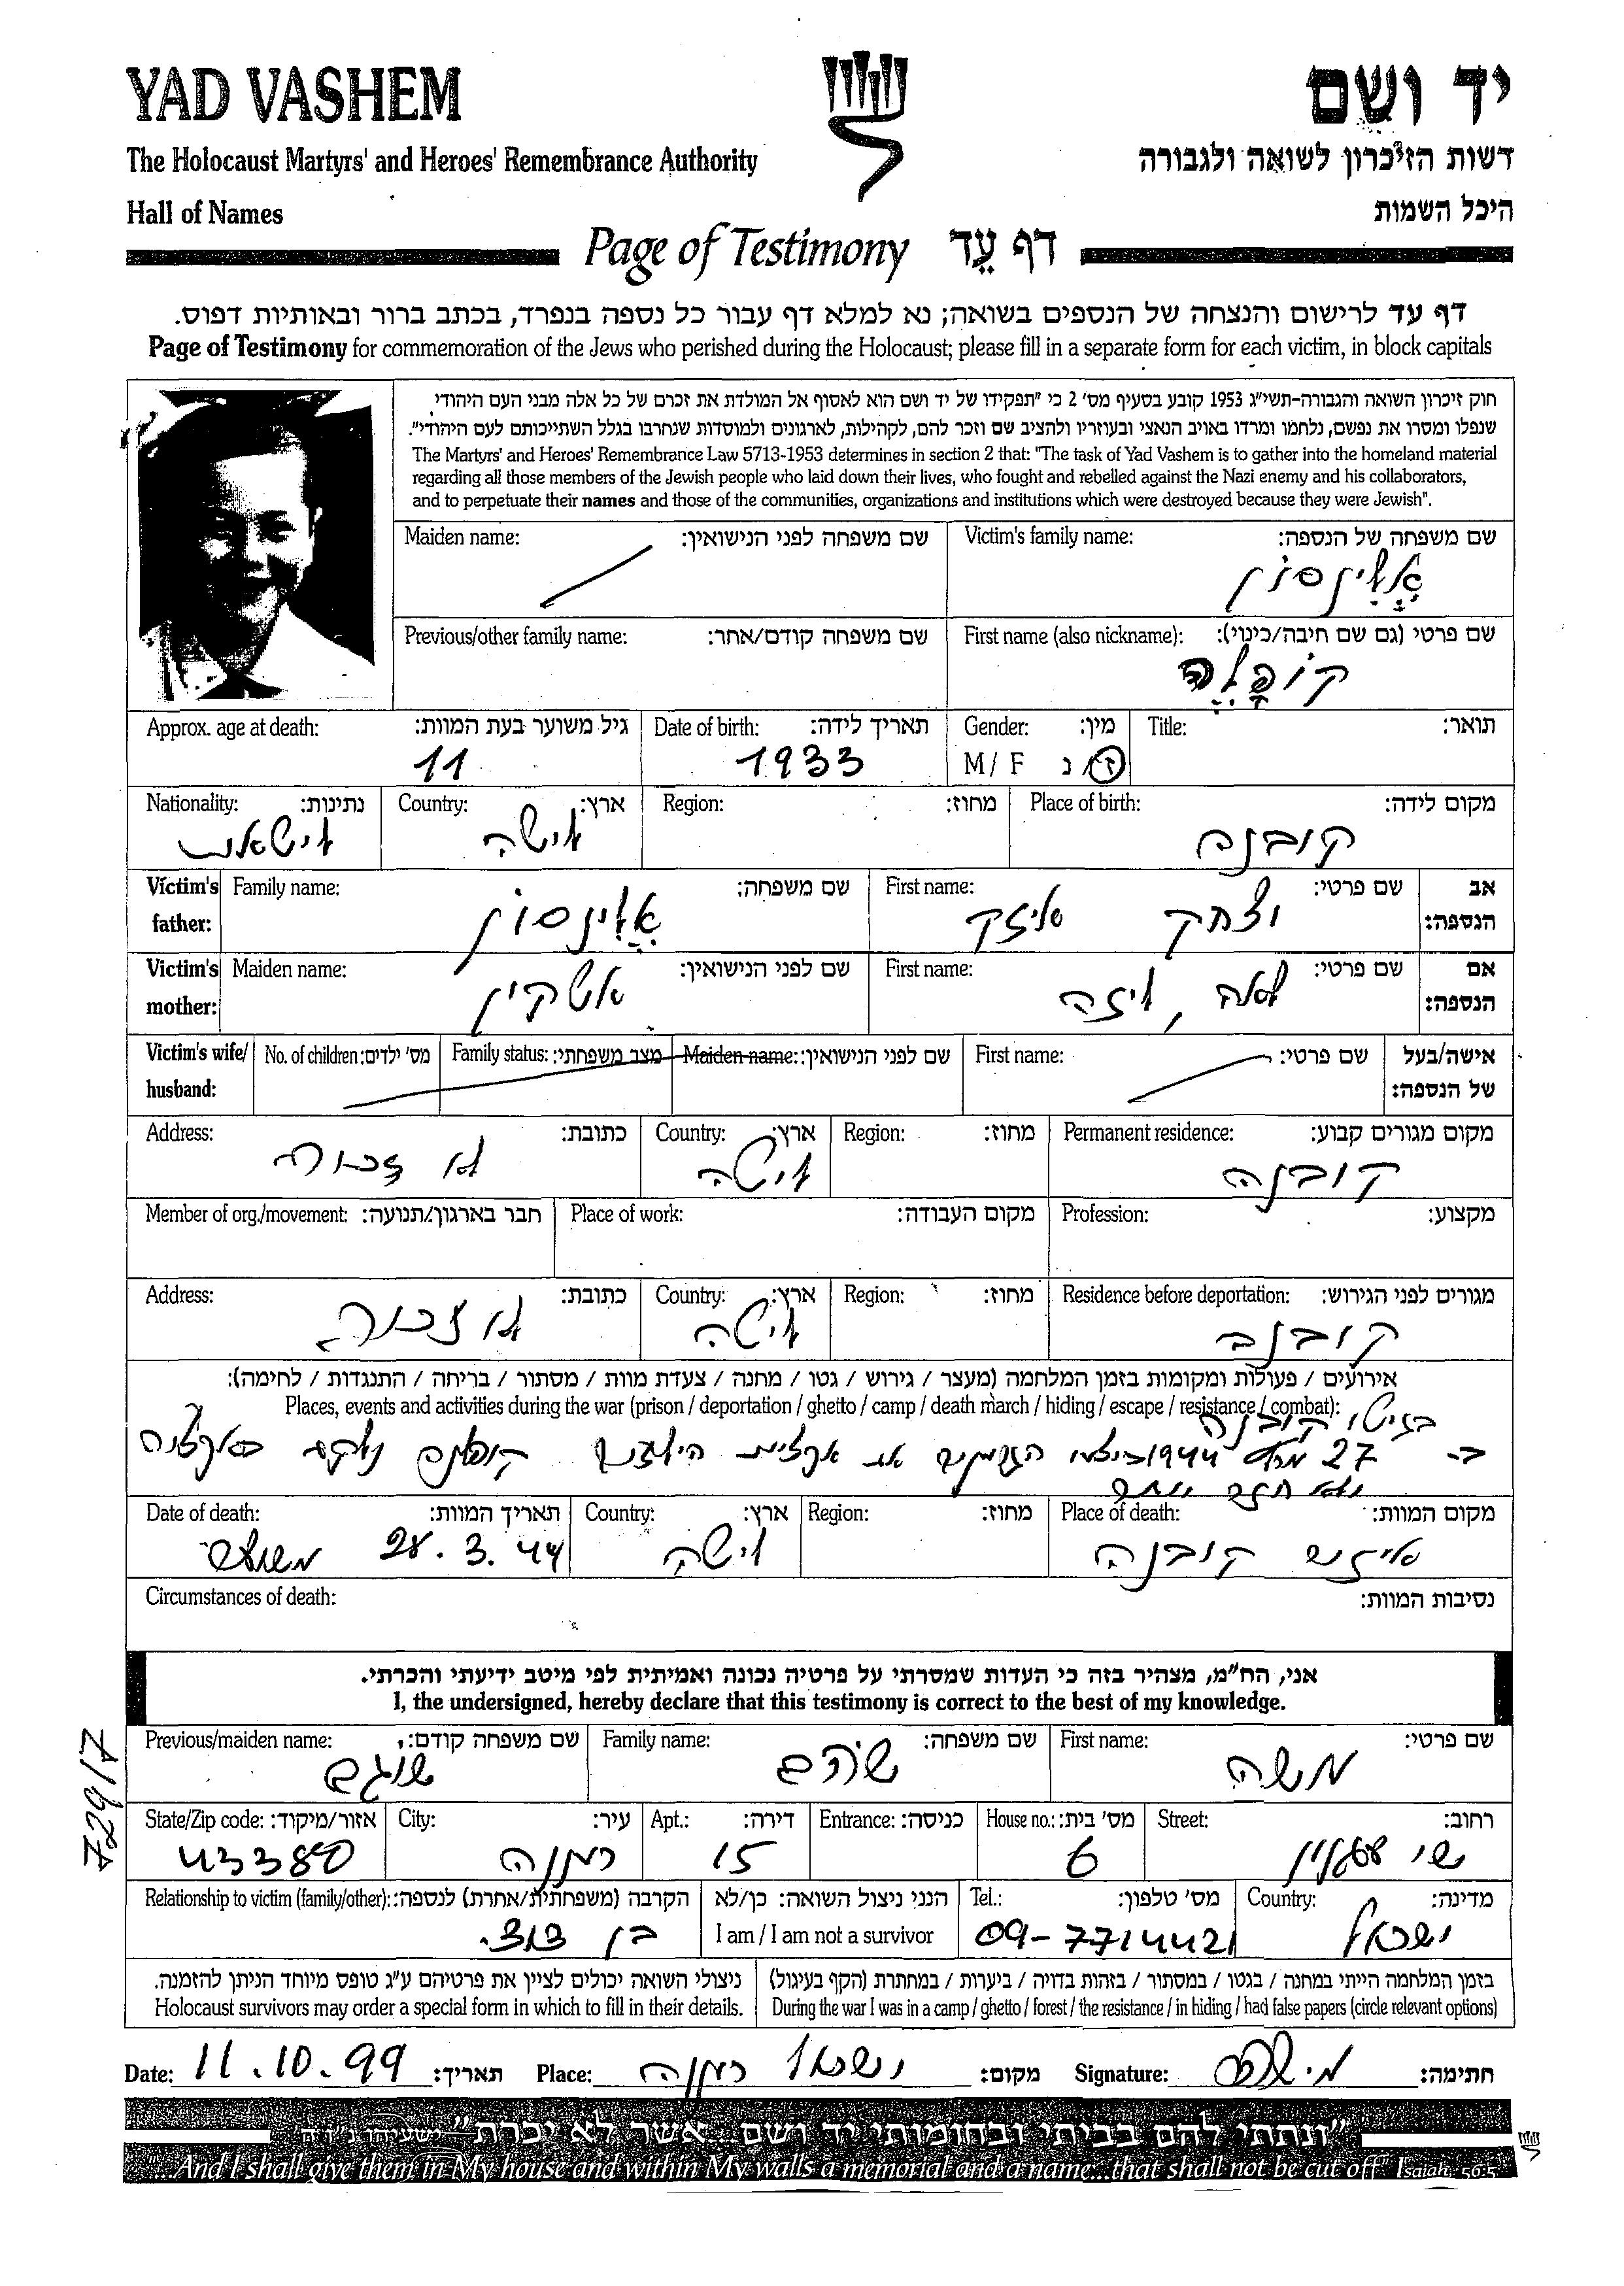 YAD VASHEM
יד ושם
The Holocaust Martyrs' and Heroes' Remembrance Authority
רשות הזיכרון לשואה ולגבורה
Hall of Names
היכל השמות
Page of Testimony דף עֵד
דף עד לרישום והנצחה של הנספים בשואה; נא למלא דף עבור כל נספה בנפרד, בכתב ברור ובאותיות דפוס.
Page of Testimony for commemoration of the Jews who perished during the Holocaust; please fill in a separate form for each victim, in block capitals
חוק זיכרון השואה והגבורה-תשי״ג 1953 קובע בסעיף מס׳ 2 כי ״תפקידו של יד ושם הוא לאסוף אל המולדת את זכרם של כל אלה מבני העם היהודי,
שנפלו ומסרו את נפשם, נלחמו ומרדו באויב הנאצי ובעוזריו ולהציב שם וזכר להם, לקהילות, לארגונים ולמוסדות שנחרבו בגלל השתייכותם לעם היהודי״.
The Martyrs' and Heroes' Remembrance Law 5713-1953 determines in section 2 that: "The task of Yad Vashem is to gather into the homeland material
regarding all those members of the Jewish people who laid down their lives, who fought and rebelled against the Nazi enemy and his collaborators,
and to perpetuate their names and those of the communities, organizations and institutions which were destroyed because they were Jewish".
Victim's family name: שם משפחה של הנספה:
Maiden name: שם משפחה לפני הנישואין:
First name (also nickname): שם פרטי (גם שם חיבה/כינוי):
Previous/other family name: שם משפחה קודם/אחר:
Title: תואר:
Gender: מין: M / F ז / נ
Date of birth: תאריך לידה: 1933
Approx. age at death: גיל משוער בעת המוות: 11
Place of birth: מקום לידה: קובנה
Region: מחוז:
Country: ארץ: ליטה
Nationality: נתינות: ליטאית
Victim's father: אב הנספה: First name: שם פרטי: יצחק אייזק
Family name: שם משפחה:
Victim's mother: אם הנספה: First name: שם פרטי: ליזה
Maiden name: שם לפני הנישואין:
Victim's wife/husband: אישה/בעל של הנספה: First name: שם פרטי:
Maiden name: שם לפני הנישואין:
Family status: מצב משפחתי:
No. of children: מס׳ ילדים:
Permanent residence: מקום מגורים קבוע: קובנה
Region: מחוז:
Country: ארץ: ליטה
Address: כתובת: לא זכור
Profession: מקצוע:
Place of work: מקום העבודה:
Member of org./movement: חבר בארגון/תנועה:
Residence before deportation: מגורים לפני הגירוש: קובנה
Region: מחוז:
Country: ארץ: ליטה
Address: כתובת: לא זכור
אירועים / פעולות ומקומות בזמן המלחמה (מעצר / גירוש / גטו / מחנה / צעדת מוות / מסתור / בריחה / התנגדות / לחימה):
Places, events and activities during the war (prison / deportation / ghetto / camp / death march / hiding / escape / resistance / combat):
בגיטו קובנה
ב- 27 מרץ 1944 ביצעו הגרמנים את אקציית הילדים נלקח באקציה
Place of death: מקום המוות: קובנה
Region: מחוז:
Country: ארץ: ליטה
Date of death: תאריך המוות: 28.3.44 משוער
Circumstances of death: נסיבות המוות:
אני, הח״מ, מצהיר בזה כי העדות שמסרתי על פרטיה נכונה ואמיתית לפי מיטב ידיעתי והכרתי.
I, the undersigned, hereby declare that this testimony is correct to the best of my knowledge.
First name: שם פרטי: משה
Family name: שם משפחה: שוהם
Previous/maiden name: שם משפחה קודם:
Street: רחוב: שי עגנון
House no.: מס׳ בית: 6
Entrance: כניסה:
Apt.: דירה: 15
City: עיר: רעננה
State/Zip code: אזור/מיקוד: 43380
Country: מדינה: ישראל
Tel.: מס׳ טלפון: 09-7714421
הנני ניצול השואה: כן/לא
I am / I am not a survivor
Relationship to victim (family/other): הקרבה (משפחתית/אחרת) לנספה: בן דוד.
בזמן המלחמה הייתי במחנה / בגטו / במסתור / בזהות בדויה / ביערות / במחתרת (הקף בעיגול)
During the war I was in a camp / ghetto / forest / the resistance / in hiding / had false papers (circle relevant options)
ניצולי השואה יכולים לציין את פרטיהם ע״ג טופס מיוחד הניתן להזמנה.
Holocaust survivors may order a special form in which to fill in their details.
Date: 11.10.99 תאריך: Place: ישראל רעננה מקום: Signature: חתימה:
״ונתתי להם בביתי ובחומותי יד ושם...אשר לא יכרת״ ישעיהו נ״ו ה
"...And I shall give them in My house and within My walls a memorial and a name...that shall not be cut off" Isaiah 56:5
729/17